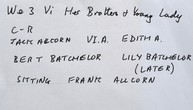 We 3 Vi Her Brothers & Young Lady
C-R
JACK ALCORN VI.A. EDITH A.
BERT BATCHELOR LILY BATCHELOR
(LATER)
SITTING FRANK ALLCORN